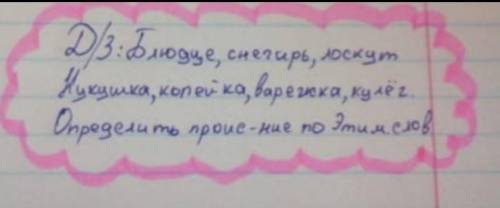 Д/З: Блюдце, снегирь, лоскут
Кукушка, копейка, варежка, кулёг.
Определить проис-ние по этим слов